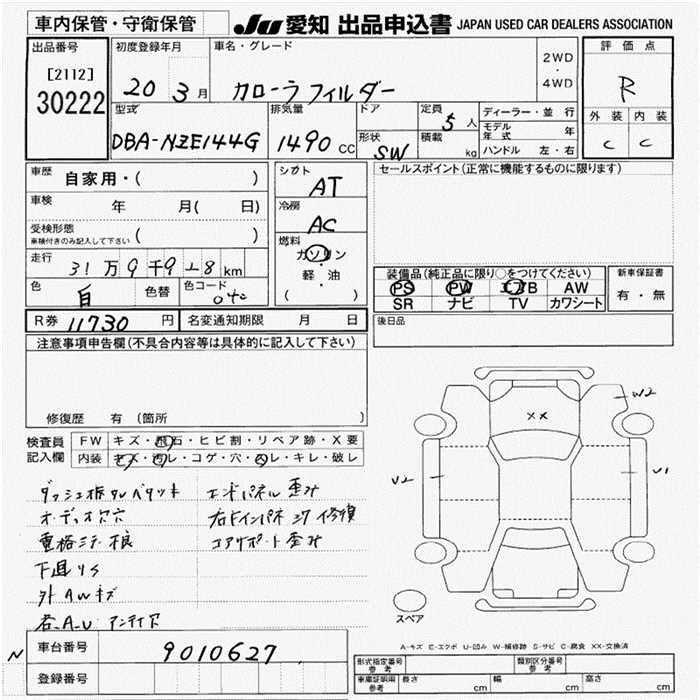 車内保管・守衛保管
JU 愛知 出品申込書 JAPAN USED CAR DEALERS ASSOCIATION
出品番号
[2112]
30222
初度登録年月
20 3月
車名・グレード
カローラフィルダー
2WD
・
4WD
評価点
R
外装 内装
C C
型式
DBA-NZE144G
排気量
1490 CC
ドア
形状
SW
定員
5人
積載
kg
ディーラー・並行
モデル年式 年
ハンドル 左・右
車歴 自家用・( )
車検 年 月( 日)
受検形態
車検付きのみ記入して下さい ( )
走行 31万9千9 8 km
色 白 色替 色コード 040
シカト
AT
冷房
AC
燃料
ガソリン
・
軽・油
( )
R券 11730 円 名変通知期限 月 日
セールスポイント(正常に機能するものに限ります)
装備品(純正品に限り○をつけてください)
PS PW エアB AW
SR ナビ TV カワシート
新車保証書
有・無
後日品
注意事項申告欄(不具合内容等は具体的に記入して下さい)
修復歴 有(箇所 )
検査員記入欄
FW キズ・飛石・ヒビ割・リペア跡・X要
内装 キズ・汚レ・コゲ・穴・スレ・キレ・破レ
エンドパネル歪み
オーディオ穴
コアサポート歪み
下廻りS
外AWキズ
W2
XX
V2
V1
スペア
A-キズ E-エクボ U-凹み W-補修跡 S-サビ C-腐食 XX-交換済
N 車台番号 9010627
登録番号
形式指定番号 参考
類別区分番号 参考
車庫証明用 参考 長さ cm 幅 cm 高さ cm